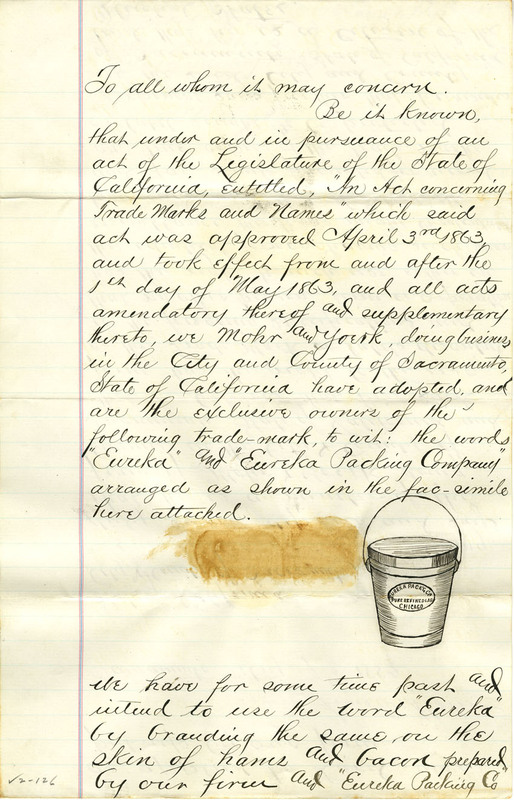 To all whom it may concern.
Be it known,
that under and in pursuance of an
act of the Legislature of the State of
California, entitled, "An Act concerning
Trade Marks and Names" which said
act was approved April 3rd 1863,
and took effect from and after the
1st day of May 1863, and all acts
amendatory thereof and supplementary
thereto, we Mohr and Yoerk, doing business
in the City and County of Sacramento,
State of California have adopted, and
are the exclusive owners of the
following trade-mark, to wit: the words
"Eureka" and "Eureka Packing Company"
arranged as shown in the fac-simile
here attached.
EUREKA PACK'G CO
PURE REFINED LARD
CHICAGO
We have for some time past and
intend to use the word "Eureka"
by branding the same on the
skin of hams and bacon prepared
by our firm and "Eureka Packing Co